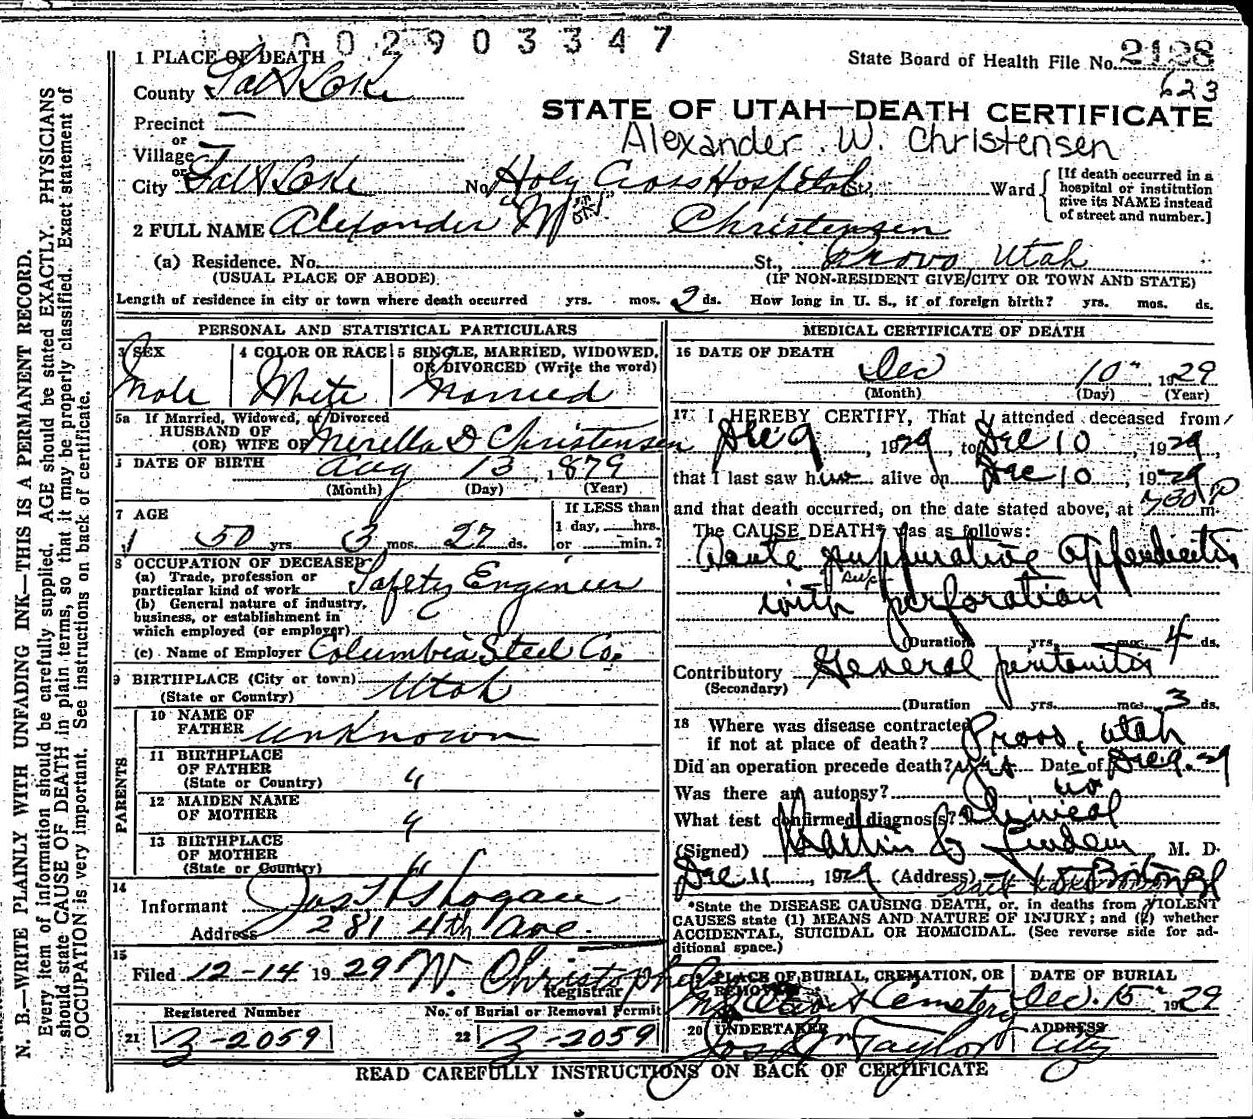 002903347
1 PLACE OF DEATH
State Board of Health File No. 2128
County Salt Lake
623
STATE OF UTAH—DEATH CERTIFICATE
Precinct —
Alexander W. Christensen
or
Village —
or
City Salt Lake No. Holy Cross Hospital St., Ward
[If death occurred in a hospital or institution give its NAME instead of street and number.]
2 FULL NAME Alexander "W" Christensen
(a) Residence. No. St., Provo Utah
(USUAL PLACE OF ABODE) (IF NON-RESIDENT GIVE CITY OR TOWN AND STATE)
Length of residence in city or town where death occurred yrs. mos. 2 ds. How long in U. S., if of foreign birth? yrs. mos. ds.
PERSONAL AND STATISTICAL PARTICULARS
3 SEX
Male
4 COLOR OR RACE
White
5 SINGLE, MARRIED, WIDOWED, OR DIVORCED (Write the word)
Married
5a If Married, Widowed, or Divorced
HUSBAND OF
(OR) WIFE OF Merella D Christensen
DATE OF BIRTH Aug 13, 1879
(Month) (Day) (Year)
7 AGE
50 yrs 3 mos. 27 ds.
If LESS than
1 day, hrs.
or min.?
8 OCCUPATION OF DECEASED
(a) Trade, profession or
particular kind of work Safety Engineer
(b) General nature of industry,
business, or establishment in
which employed (or employer)
(c) Name of Employer Columbia Steel Co.
9 BIRTHPLACE (City or town)
(State or Country) Utah
PARENTS
10 NAME OF
FATHER Unknown
11 BIRTHPLACE
OF FATHER
(State or Country) "
12 MAIDEN NAME
OF MOTHER "
13 BIRTHPLACE
OF MOTHER
(State or Country) "
14
Informant Jas H Shogan
Address 281 4th Ave.
15
Filed 12-14 1929 W. Christopherson
Registrar
Registered Number No. of Burial or Removal Permit
21 B-2059 22 B-2059
MEDICAL CERTIFICATE OF DEATH
16 DATE OF DEATH
Dec 10" 1929
(Month) (Day) (Year)
17 I HEREBY CERTIFY, That I attended deceased from
Dec 9, 1929, to Dec 10, 1929,
that I last saw him alive on Dec 10, 1929
and that death occurred, on the date stated above, at 730 P m.
The CAUSE DEATH* was as follows:
Acute suppurative appendicitis
with perforation
(Duration yrs. mos. 4 ds.
Contributory General peritonitis
(Secondary)
(Duration yrs. mos. 3 ds.
18 Where was disease contracted
if not at place of death? Provo, Utah
Did an operation precede death? yes Date of Dec 9-29
Was there an autopsy? no
What test confirmed diagnosis? Clinical
(Signed) Martin C Lindem, M. D.
Dec 11, 1929 (Address)
*State the DISEASE CAUSING DEATH, or, in deaths from VIOLENT
CAUSES state (1) MEANS AND NATURE OF INJURY; and (2) whether
ACCIDENTAL, SUICIDAL OR HOMICIDAL. (See reverse side for ad-
ditional space.)
19 PLACE OF BURIAL, CREMATION, OR
REMOVAL
Cemetery
DATE OF BURIAL
Dec. 15" 1929
20 UNDERTAKER
Jos Wm Taylor
ADDRESS
City
READ CAREFULLY INSTRUCTIONS ON BACK OF CERTIFICATE
N. B.—WRITE PLAINLY WITH UNFADING INK—THIS IS A PERMANENT RECORD.
Every item of information should be carefully supplied. AGE should be stated EXACTLY. PHYSICIANS
should state CAUSE OF DEATH in plain terms, so that it may be properly classified. Exact statement of
OCCUPATION is very important. See instructions on back of certificate.